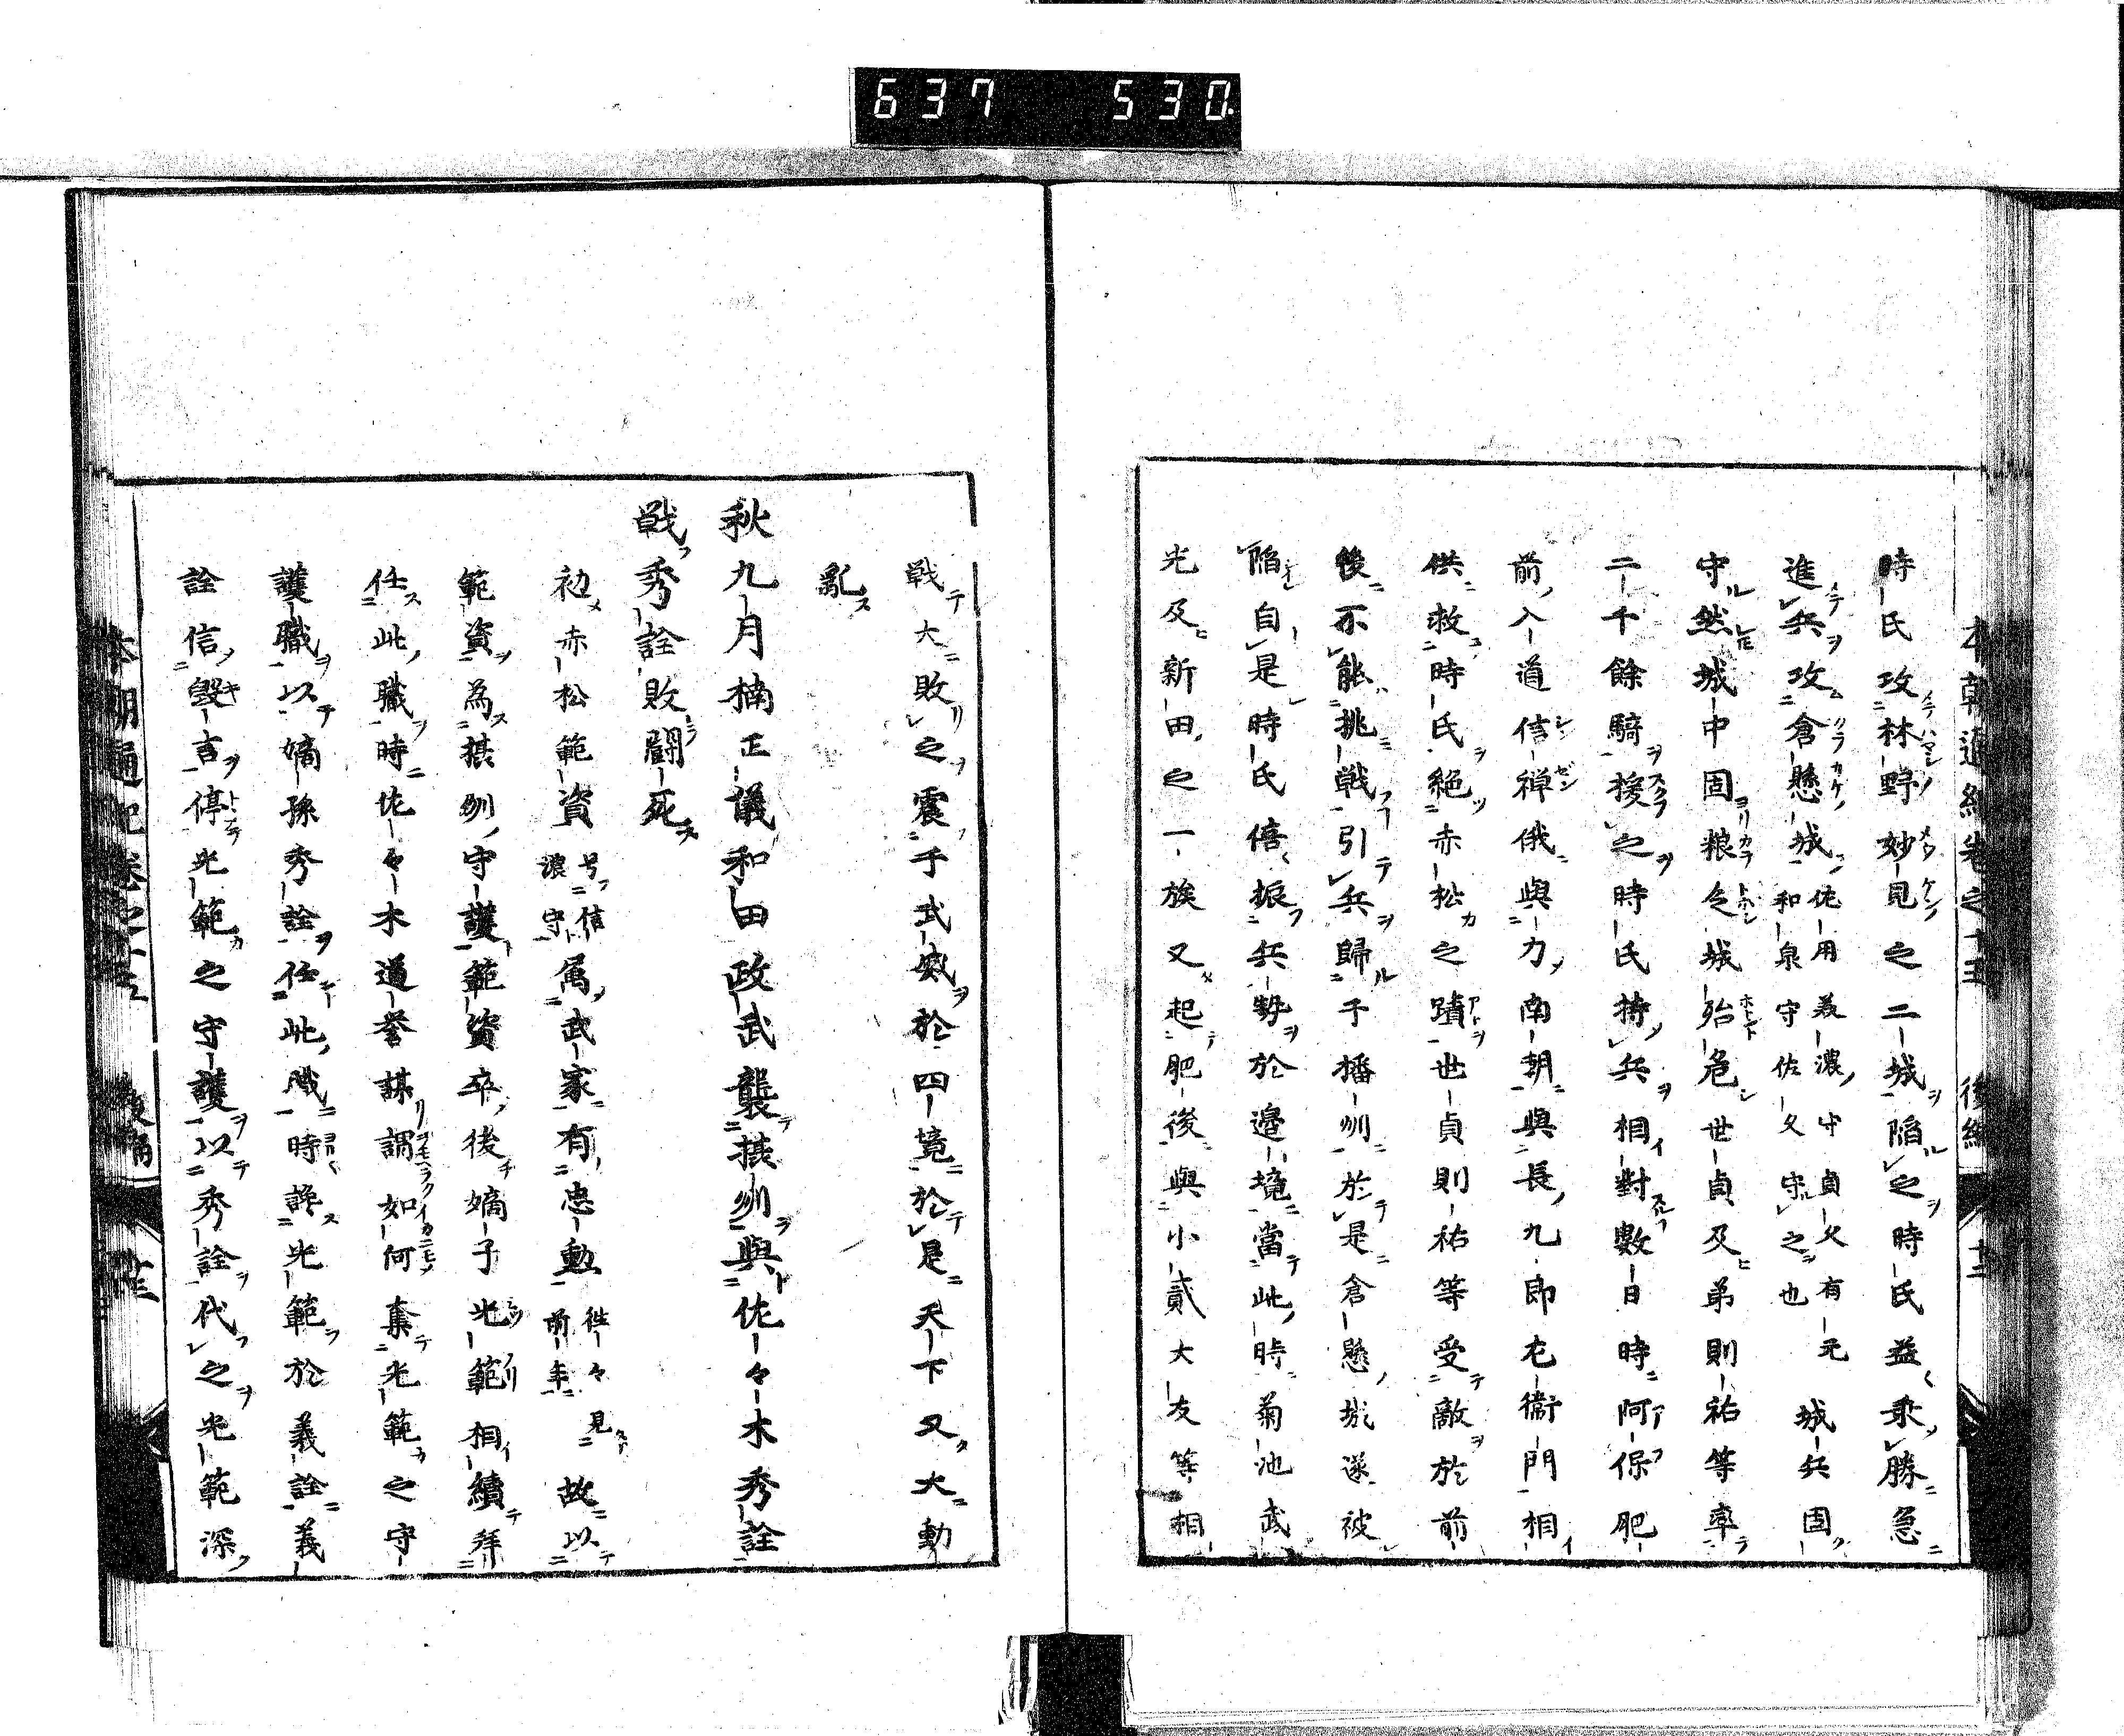 637 530
本朝通紀卷之十五 後編 十二
時氏攻林野妙見之二城陥之時氏益乘勝急
進兵攻倉懸城佐用義濃守貞久有元和泉守佐久守之也城兵固
守然城中固粮乏城殆危世貞及弟則祐等率
二千餘騎援之時氏待兵相對數日時阿保肥
前入道信禅俄與力南朝與長九郎左衞門相
供救時氏絶赤松之蹟世貞則祐等受敵於前
後不能挑戦引兵歸于播州於是倉懸城遂被
陥自是時氏倍振兵勢於邉境當此時菊池武
光及新田之一族又起肥後與小貳大友等相
戦大敗之震于武威於四境於是天下又大動
亂
秋九月楠正議和田政武襲摂州與佐々木秀詮
戦秀詮敗鬪死
初赤松範資号信濃守属武家有忠勳徃々見前年故以
範資為摂州守護範資卒後嫡子光範相續拜
任此職時佐々木道誉謀謂如何奪光範之守
護職以嫡孫秀詮任此職時讒光範於義詮義
詮信毀言停光範之守護以秀詮代之光範深
本朝通紀卷之十五 後編